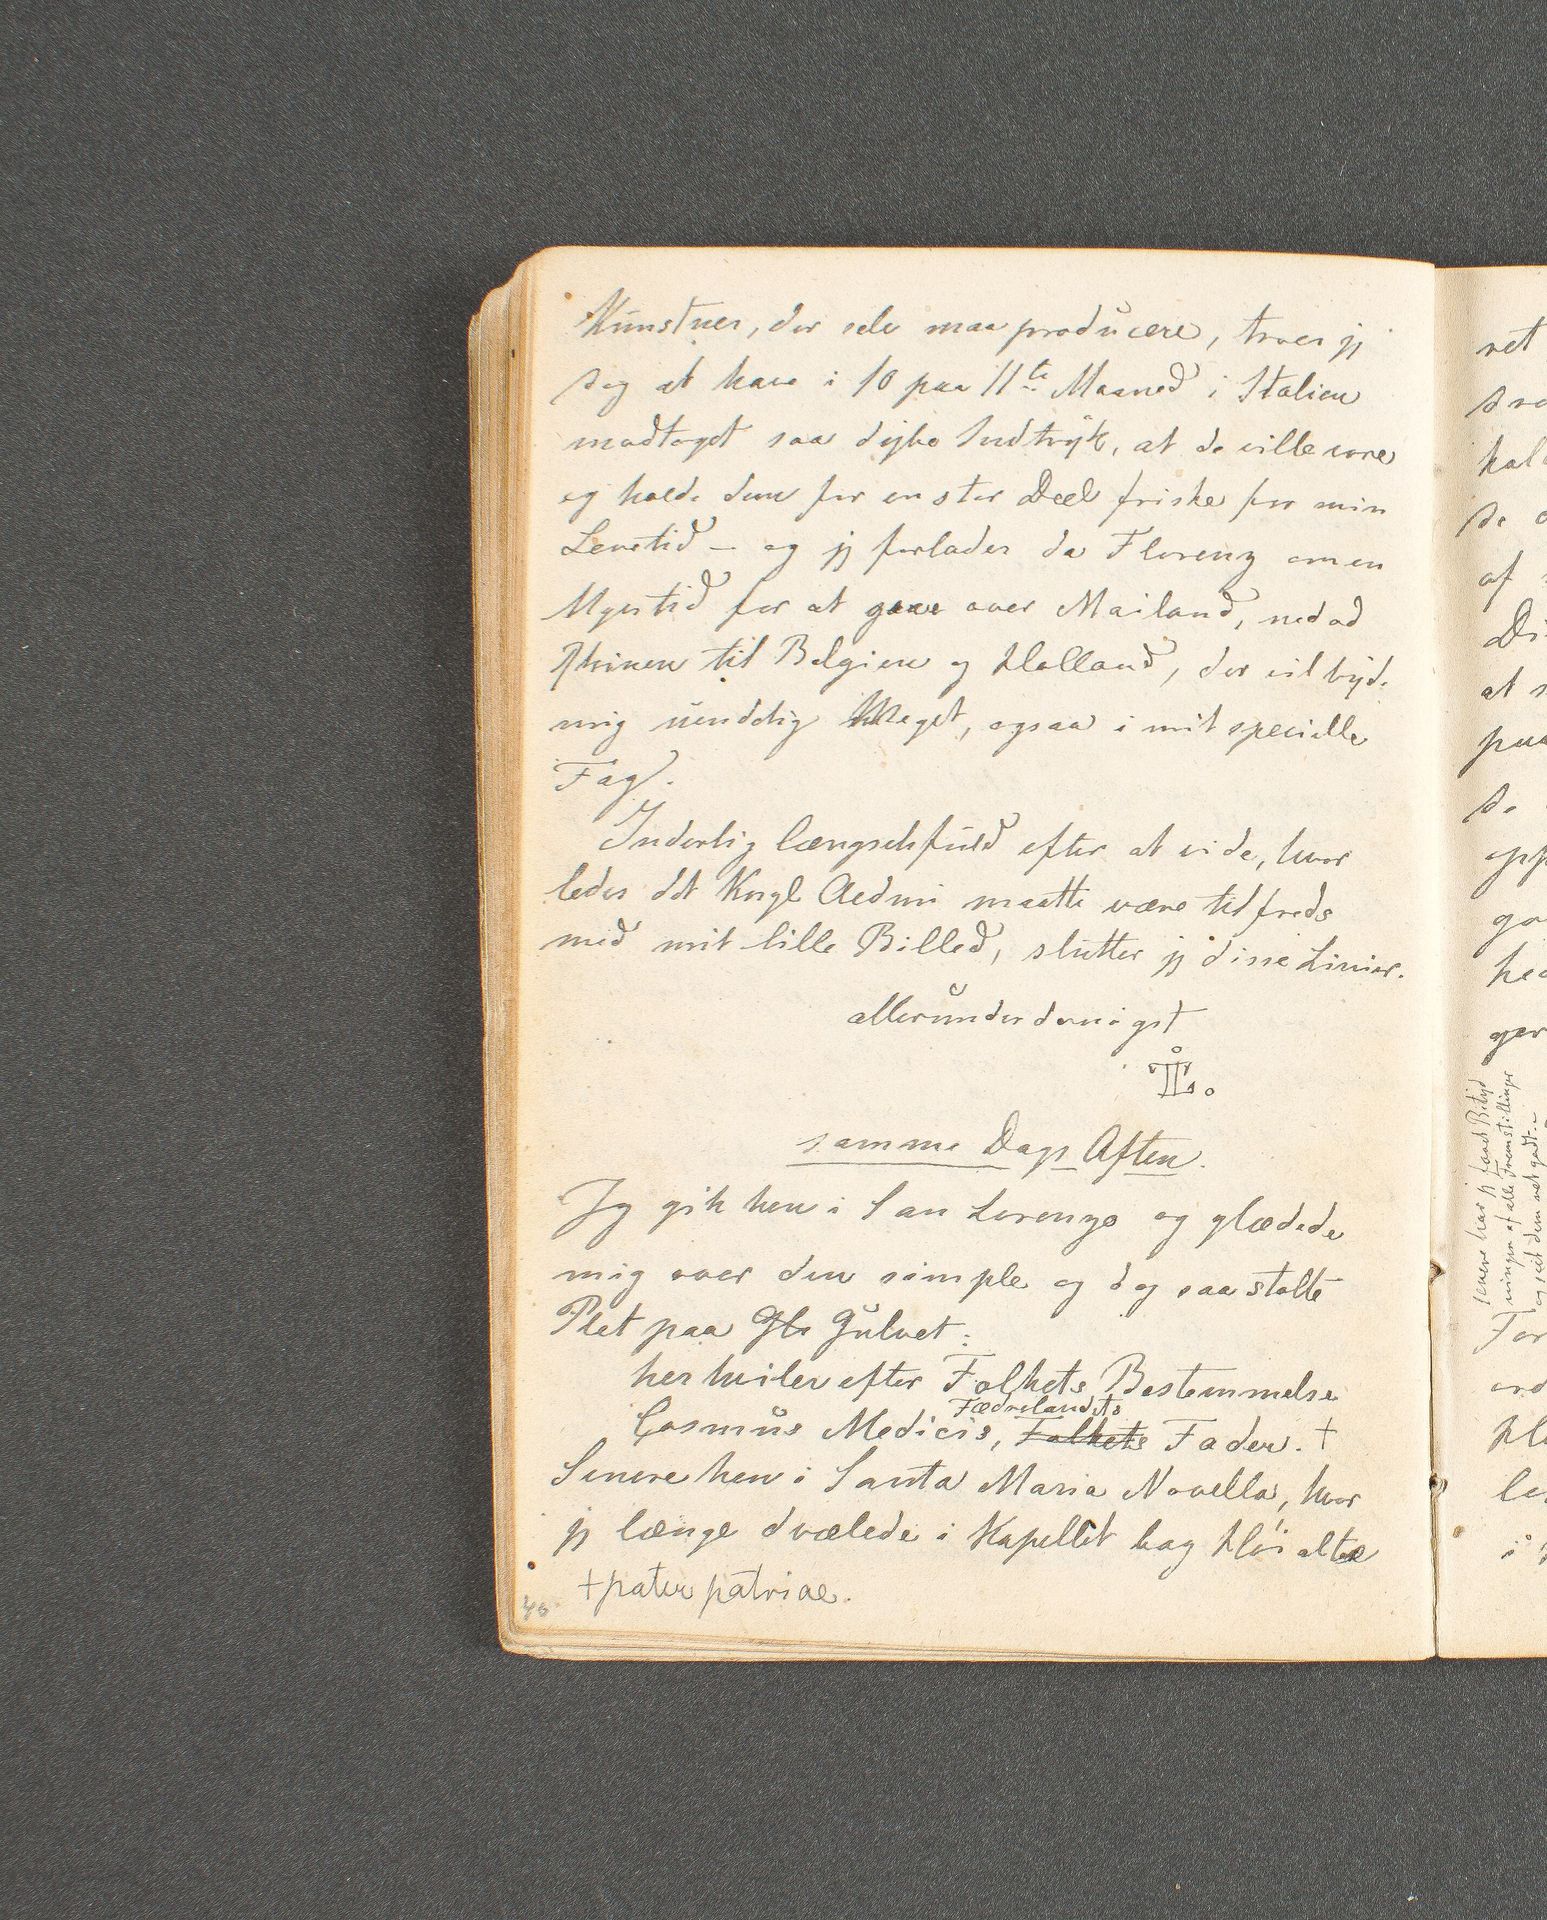 Kunstner, der selv maa producere, troer jeg
dog at have i 10 paa 11te Maaned i Italien
modtaget saa dybe Indtryk, at de ville vare
og holde dem for en stor Deel friske for min
Levetid – og jeg forlader da Florenz om en
Ugestid for at gaae over Mailand, ned ad
Rhinen til Belgien og Holland, der vil byde
mig uendelig Meget, ogsaa i mit specielle
Fag.
Inderlig længselsfuld efter at vide, hvor
ledes det Kngl Acdmi maatte være tilfreds
med mit lille Billed, slutter jeg disse Linier.
allerunderdanigst
L.
samme Dags Aften.
Jeg gik hen i San Lorenzo og glædede
mig over den simple og dog saa stolte
Plet paa Gls Gulvet:
her hviler efter Folkets Bestemmelse
Fædrelandets
Cosmus Medicis, Folkets Fader. +
Senere hen i Santa Maria Novella, hvor
jeg længe dvælede i Kapellet bag Høialte
+ pater patriae.
vet
hol
af
Di
at s
paa
opp
ga
hed
gør
senere har jeg faaet Betyd
ninger af alle Fremstillinger
og seet dem
For